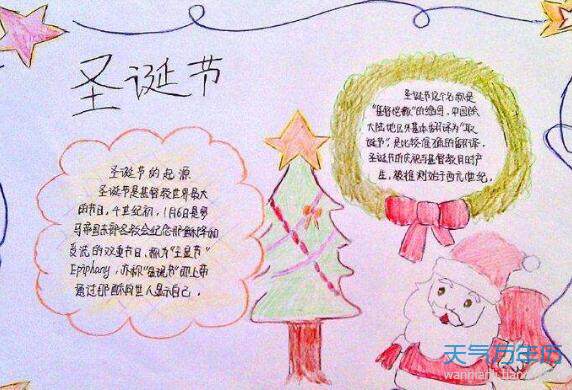 圣诞节
圣诞节的起源
圣诞节是基督教世界最大
的节日，4世纪初，1月6日是罗
马帝国东部各教会纪念耶稣降临和
受洗的双重节日，称为"主显节"
Epiphany，亦称"显现节"即上帝
通过耶稣向世人显示自己。
圣诞节这个名称是
"基督弥撒"的缩写，中国除
大陆地区外基本翻译为"耶
诞节"，是比较准确的翻译。
圣诞节的庆祝与基督教同时产
生，被推测始于西元1世纪，
天气万年历
wannianli.tianqi